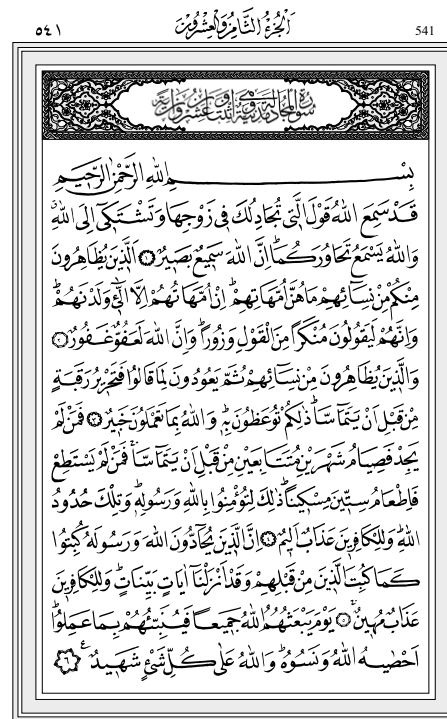 ٥٤١ اَلْجُزْءُ الثَّامِنُ وَالْعِشْرُونَ 541
سُورَةُ الْمُجَادِلَةِ مَدَنِيَّةٌ وَهِيَ اثْنَتَانِ وَعِشْرُونَ اٰيَةً
بِسْمِ اللهِ الرَّحْمٰنِ الرَّحِيمِ
قَدْ سَمِعَ اللهُ قَوْلَ الَّتِي تُجَادِلُكَ فِي زَوْجِهَا وَتَشْتَكِي اِلَى اللهِ
وَاللهُ يَسْمَعُ تَحَاوُرَكُمَا اِنَّ اللهَ سَمِيعٌ بَصِيرٌ ١ اَلَّذِينَ يُظَاهِرُونَ
مِنْكُمْ مِنْ نِسَائِهِمْ مَا هُنَّ اُمَّهَاتِهِمْ اِنْ اُمَّهَاتُهُمْ اِلَّا الّٰٓئِ وَلَدْنَهُمْ
وَاِنَّهُمْ لَيَقُولُونَ مُنْكَرًا مِنَ الْقَوْلِ وَزُورًا وَاِنَّ اللهَ لَعَفُوٌّ غَفُورٌ ٢
وَالَّذِينَ يُظَاهِرُونَ مِنْ نِسَائِهِمْ ثُمَّ يَعُودُونَ لِمَا قَالُوا فَتَحْرِيرُ رَقَبَةٍ
مِنْ قَبْلِ اَنْ يَتَمَاسَّا ذٰلِكُمْ تُوعَظُونَ بِهِ وَاللهُ بِمَا تَعْمَلُونَ خَبِيرٌ ٣ فَمَنْ لَمْ
يَجِدْ فَصِيَامُ شَهْرَيْنِ مُتَتَابِعَيْنِ مِنْ قَبْلِ اَنْ يَتَمَاسَّا فَمَنْ لَمْ يَسْتَطِعْ
فَاِطْعَامُ سِتِّينَ مِسْكِينًا ذٰلِكَ لِتُؤْمِنُوا بِاللهِ وَرَسُولِهِ وَتِلْكَ حُدُودُ
اللهِ وَلِلْكَافِرِينَ عَذَابٌ اَلِيمٌ ٤ اِنَّ الَّذِينَ يُحَادُّونَ اللهَ وَرَسُولَهُ كُبِتُوا
كَمَا كُبِتَ الَّذِينَ مِنْ قَبْلِهِمْ وَقَدْ اَنْزَلْنَا اٰيَاتٍ بَيِّنَاتٍ وَلِلْكَافِرِينَ
عَذَابٌ مُهِينٌ ٥ يَوْمَ يَبْعَثُهُمُ اللهُ جَمِيعًا فَيُنَبِّئُهُمْ بِمَا عَمِلُوا
اَحْصٰيهُ اللهُ وَنَسُوهُ وَاللهُ عَلٰى كُلِّ شَيْءٍ شَهِيدٌ ٦